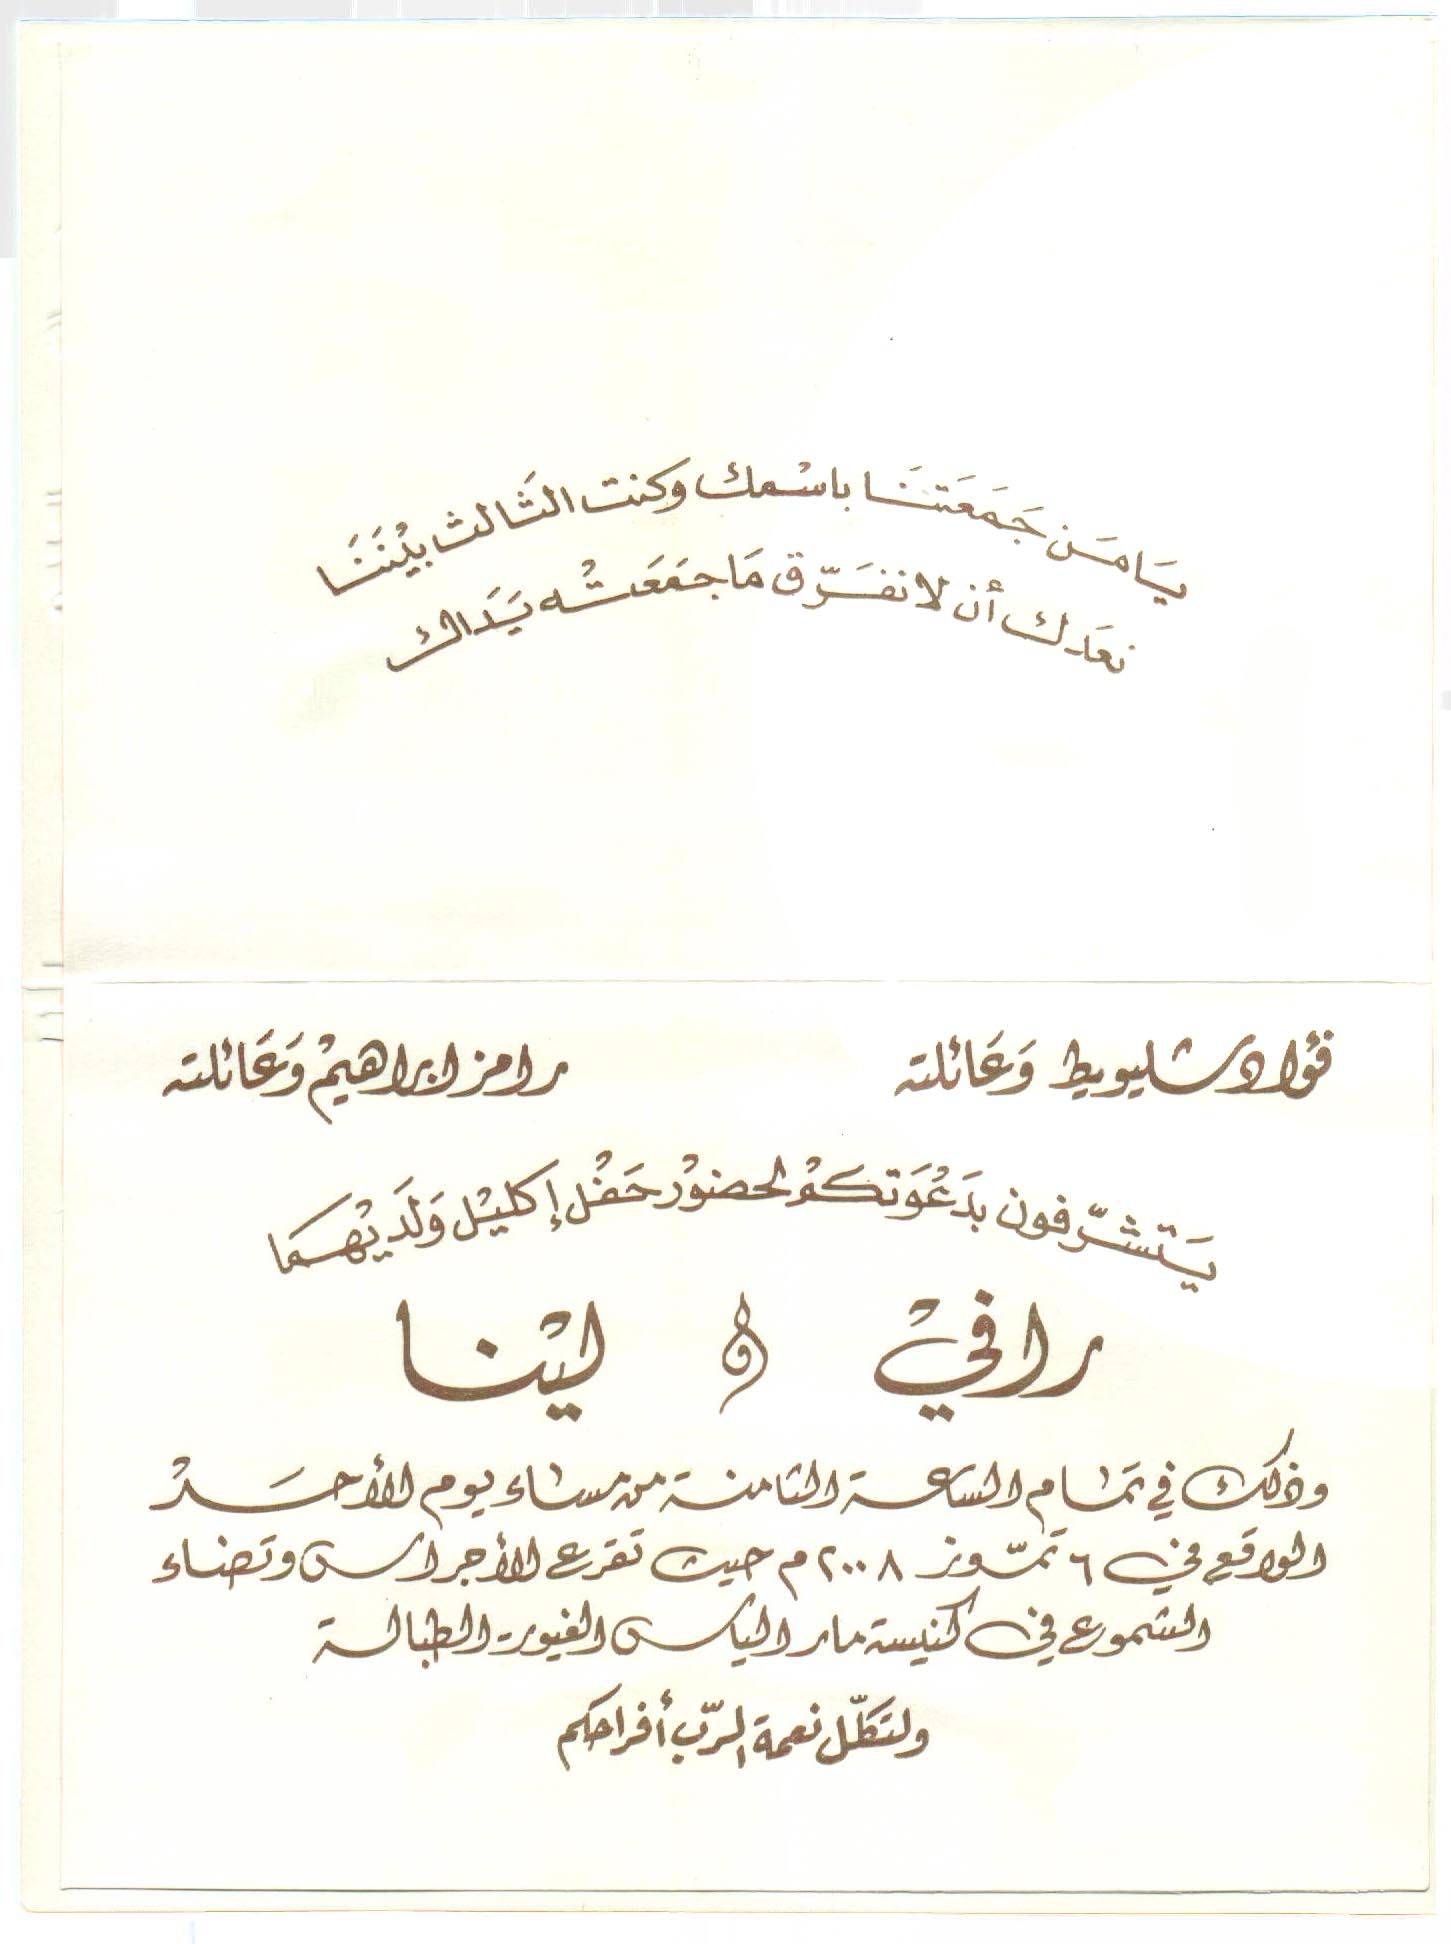 يَا مَن جَمَعَتنَا باسْمك وكنت الثَالث بيْننَا
نعَدك أن لا نفَرّق مَا جمَعَتْه يَدَاك
فؤاد شليويط وَعَائلته
رامز ابراهيْم وَعَائلته
يَتشرّفون بدَعْوَتكمْ لحضوْر حَفْل إكليْل وَلَديْهمَا
رافيْ و ليْنا
وذلك في تمَام السَاعة الثامنة من مسَاء يوم الأحَدْ
الواقع في ٦ تمّوز ٢٠٠٨ م حيث تقرع الأجراس وتضاء
الشموع في كنيسة مار الياس الغيور - الطبالة
ولتكلّل نعمة الرّب أفراحكم